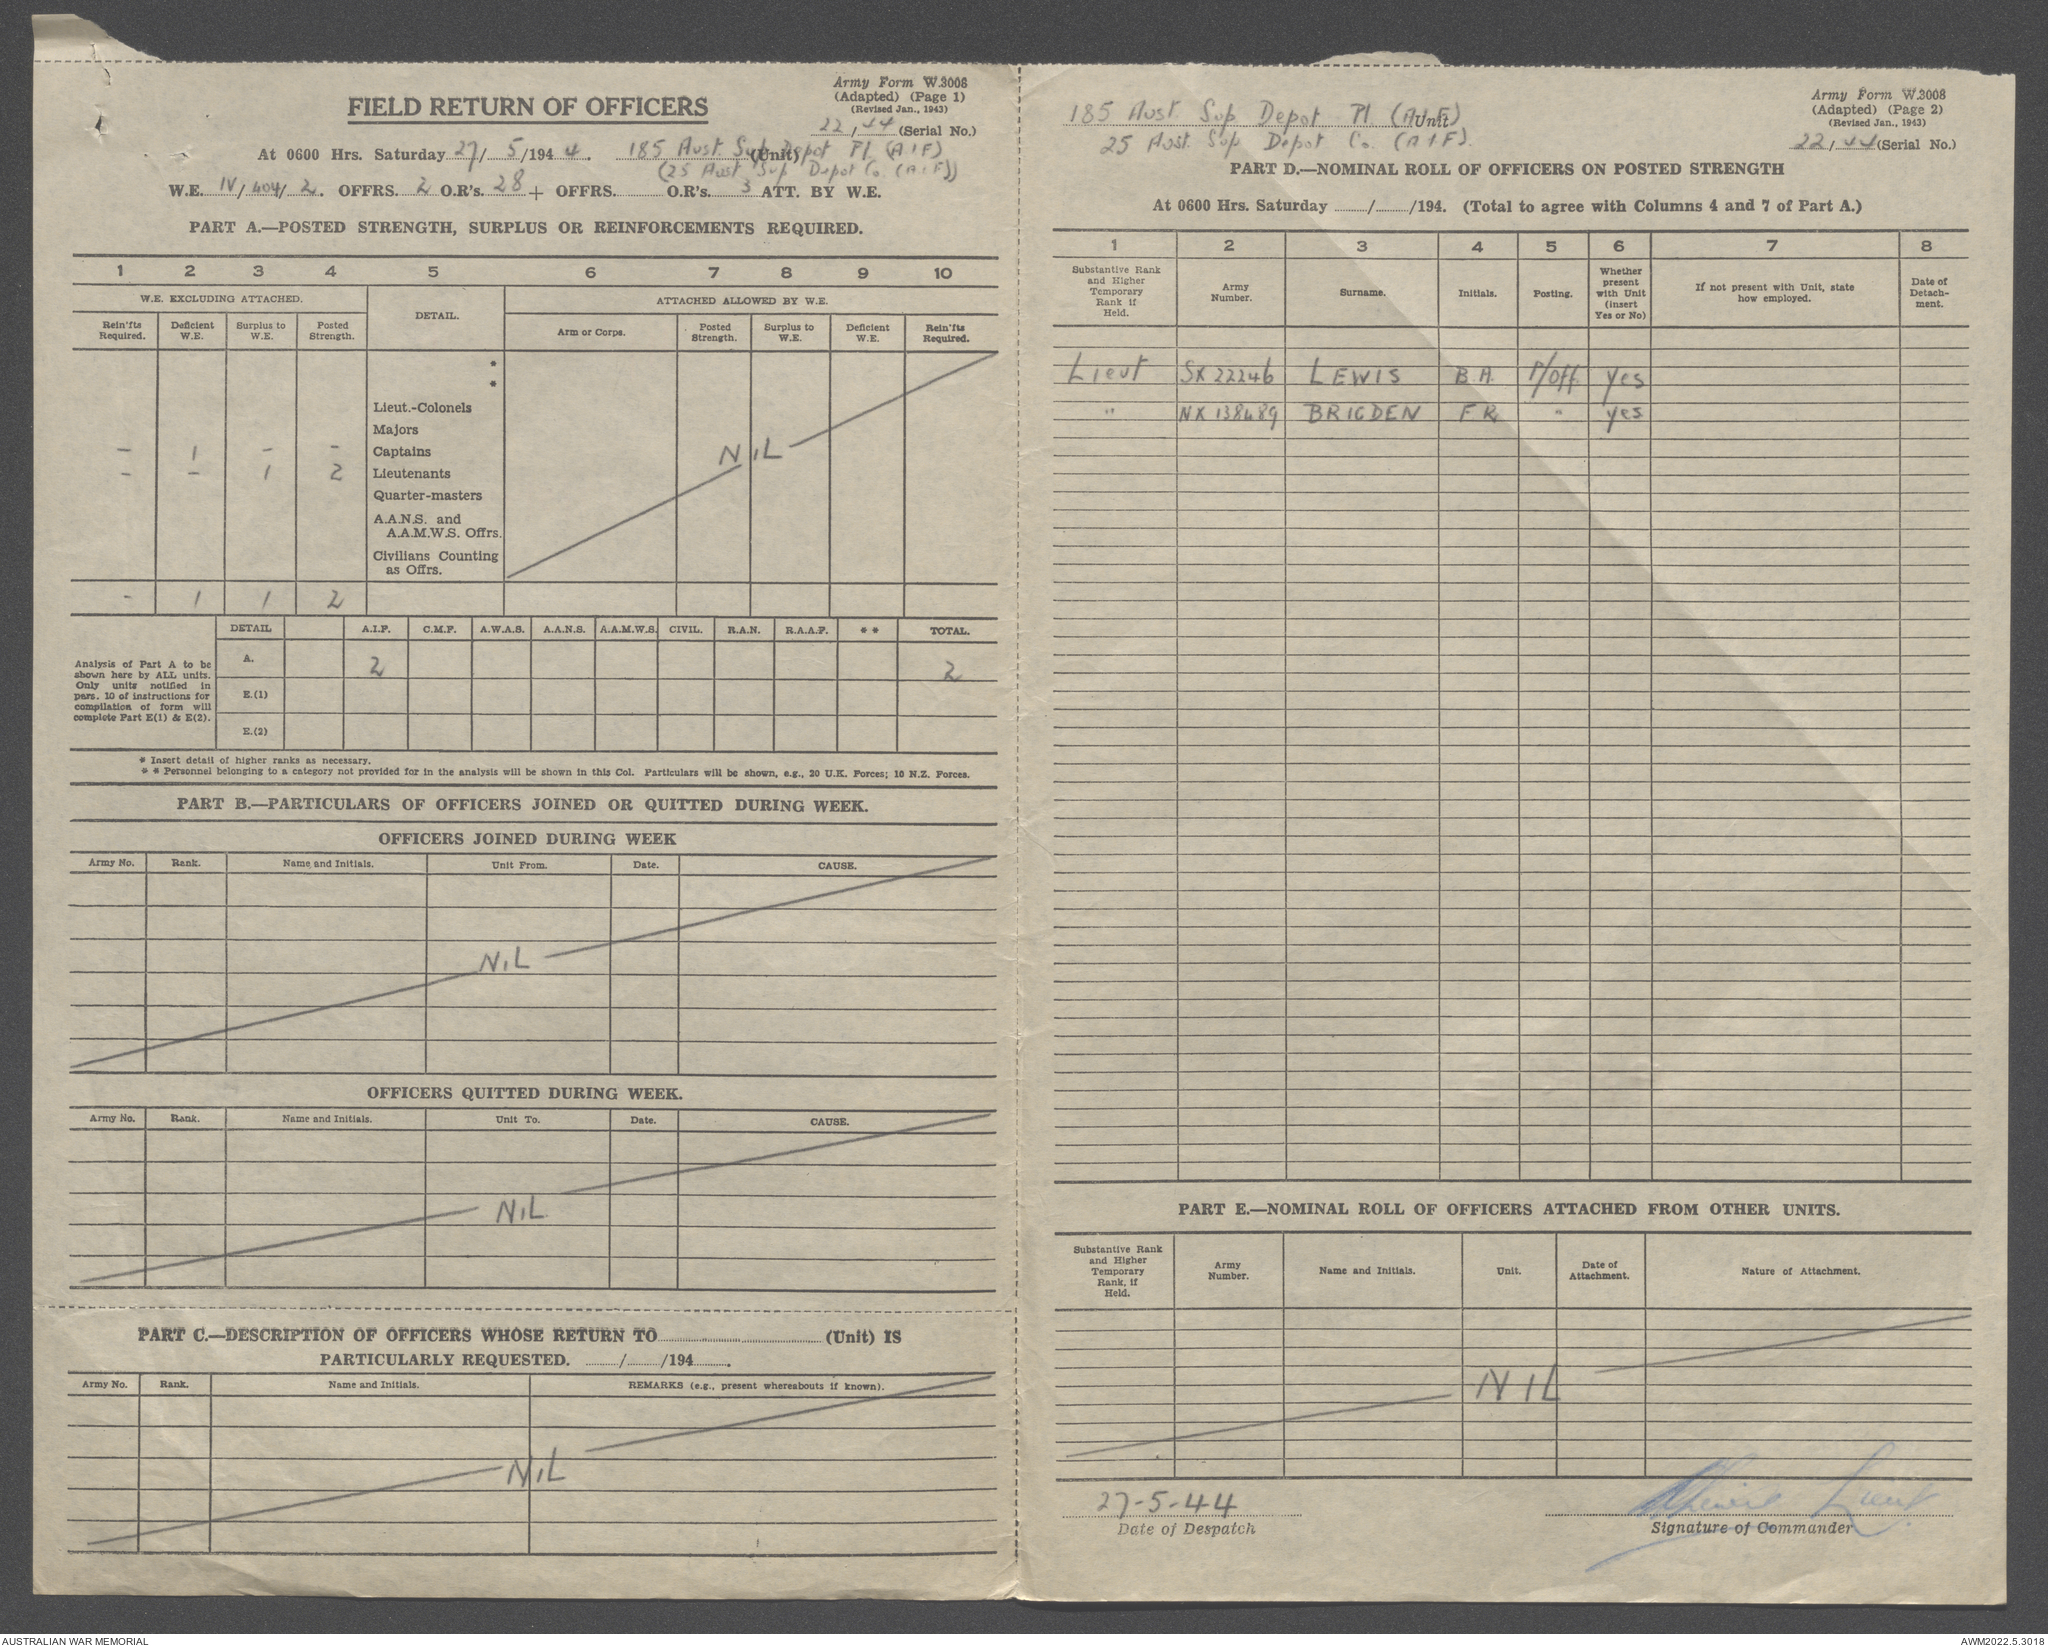 Army Form W.3008
(Adapted) (Page 1)
(Revised Jan., 1943)
FIELD RETURN OF OFFICERS
22/44 (Serial No.)
At 0600 Hrs. Saturday 27/5/1944. 185 Aust. Sup Depot Pl (AIF) (Unit)
(25 Aust Sup Depot Co. (AIF))
W.E. IV/404/2. OFFRS. 2 O.R's. 28 + OFFRS. O.R's. 3 ATT. BY W.E.
PART A.—POSTED STRENGTH, SURPLUS OR REINFORCEMENTS REQUIRED.
1 2 3 4 5 6 7 8 9 10
W.E. EXCLUDING ATTACHED. DETAIL. ATTACHED ALLOWED BY W.E.
Rein'fts Required. Deficient W.E. Surplus to W.E. Posted Strength. Arm or Corps. Posted Strength. Surplus to W.E. Deficient W.E. Rein'fts Required.
*
*
Lieut.-Colonels
Majors
– 1 – – Captains NIL
– – 1 2 Lieutenants
Quarter-masters
A.A.N.S. and
A.A.M.W.S. Offrs.
Civilians Counting
as Offrs.
- 1 1 2
DETAIL A.I.F. C.M.F. A.W.A.S. A.A.N.S. A.A.M.W.S. CIVIL. R.A.N. R.A.A.F. * * TOTAL.
Analysis of Part A to be shown here by ALL units. Only units notified in para. 10 of instructions for compilation of form will complete Part E(1) & E(2).
A. 2 2
E.(1)
E.(2)
* Insert detail of higher ranks as necessary.
* * Personnel belonging to a category not provided for in the analysis will be shown in this Col. Particulars will be shown, e.g., 20 U.K. Forces; 10 N.Z. Forces.
PART B.—PARTICULARS OF OFFICERS JOINED OR QUITTED DURING WEEK.
OFFICERS JOINED DURING WEEK
Army No. Rank. Name and Initials. Unit From. Date. CAUSE.
NIL
OFFICERS QUITTED DURING WEEK.
Army No. Rank. Name and Initials. Unit To. Date. CAUSE.
NIL
PART C.—DESCRIPTION OF OFFICERS WHOSE RETURN TO (Unit) IS
PARTICULARLY REQUESTED. / /194 .
Army No. Rank. Name and Initials. REMARKS (e.g., present whereabouts if known).
NIL
Army Form W.3008
(Adapted) (Page 2)
(Revised Jan., 1943)
185 Aust. Sup Depot Pl (AIF) (Unit)
25 Aust. Sup Depot Co. (AIF). 22/44 (Serial No.)
PART D.—NOMINAL ROLL OF OFFICERS ON POSTED STRENGTH
At 0600 Hrs. Saturday / /194. (Total to agree with Columns 4 and 7 of Part A.)
1 2 3 4 5 6 7 8
Substantive Rank and Higher Temporary Rank if Held. Army Number. Surname. Initials. Posting. Whether present with Unit (insert Yes or No) If not present with Unit, state how employed. Date of Detachment.
Lieut SX 22246 LEWIS B.A. P/Off. yes
" NX 138489 BRIGDEN F R " yes
PART E.—NOMINAL ROLL OF OFFICERS ATTACHED FROM OTHER UNITS.
Substantive Rank and Higher Temporary Rank, if Held. Army Number. Name and Initials. Unit. Date of Attachment. Nature of Attachment.
NIL
27-5-44 Lieut
Date of Despatch Signature of Commander
AUSTRALIAN WAR MEMORIAL AWM2022.5.3018